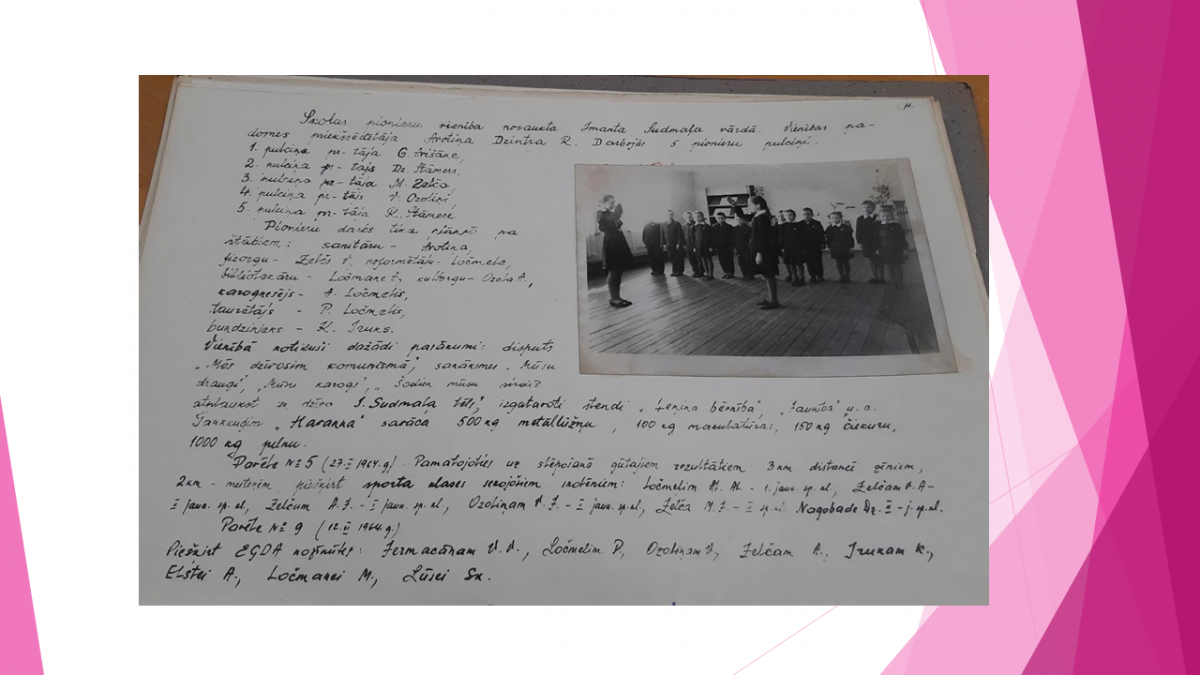 11.
Skolas pionieru vienība nosaukta Imanta Sudmaļa vārdā. Vienības pa-
domes priekšsēdētāja Avotiņa Dzintra R. Darbojās 5 pionieru pulciņi.
1. pulciņa pr-tāja G. Avišāne,
2. pulciņa pr-tājs Dz. Štāmers,
3. pulciņa pr-tāja M. Zelča
4. pulciņa pr-tājs V. Ozoliņš
5. pulciņa pr-tāja R. Štāmere
Pionieru darbs tika plānots pa
štābiem: sanitāru - Avotiņa,
fizorgu - Zelčs V. noformētāju - Ločmele,
bibliotekāru - Ločmane kultorgu - Ozola A.,
karognesējs - A. Ločmelis,
taurētājs - P. Ločmelis,
bundzinieks - K. Iruks.
Vienībā notikuši dažādi pasākumi: disputs
„Mēs dzīvosim komunismā", sanāksmes „Mūsu
draugi", „Mūsu karogi", „Šodien mūsu sirdīs
atplaukst un dzīvo I. Sudmaļa tēls", izgatavoti stendi „Ļeņina bērnība", „Jaunība" u.c.
Tankkuģim „Havanna" savāca 500 kg metāllūžņu, 100 kg makulatūras, 150 kg čiekuru,
1000 kg pelnu.
Pavēle № 5 (1964.g.) Pamatojoties uz slēpošanā gūtajiem rezultātiem 3 km distancē zēniem,
2 km - meitenēm, piešķirt sporta klases sekojošiem skolēniem: Ločmelim Al. Ab. - I jaun. sp. kl., Zelčam V. A -
II jaun. sp. kl., Zelčam A. J. - I jaun. sp. kl., Ozoliņam V. J. - II jaun. sp. kl., Zelča M. J. - II sp. kl. Nagobade Dz. II - j. sp. kl.
Pavēle № 9 (1964.g.)
Piešķirt EGDA nozīmītes: Germacānam V. V., Ločmelim P, Ozoliņam V, Zelčam A., Irukam K.,
Elstei A., Ločmanei M., Lūsei Sk.